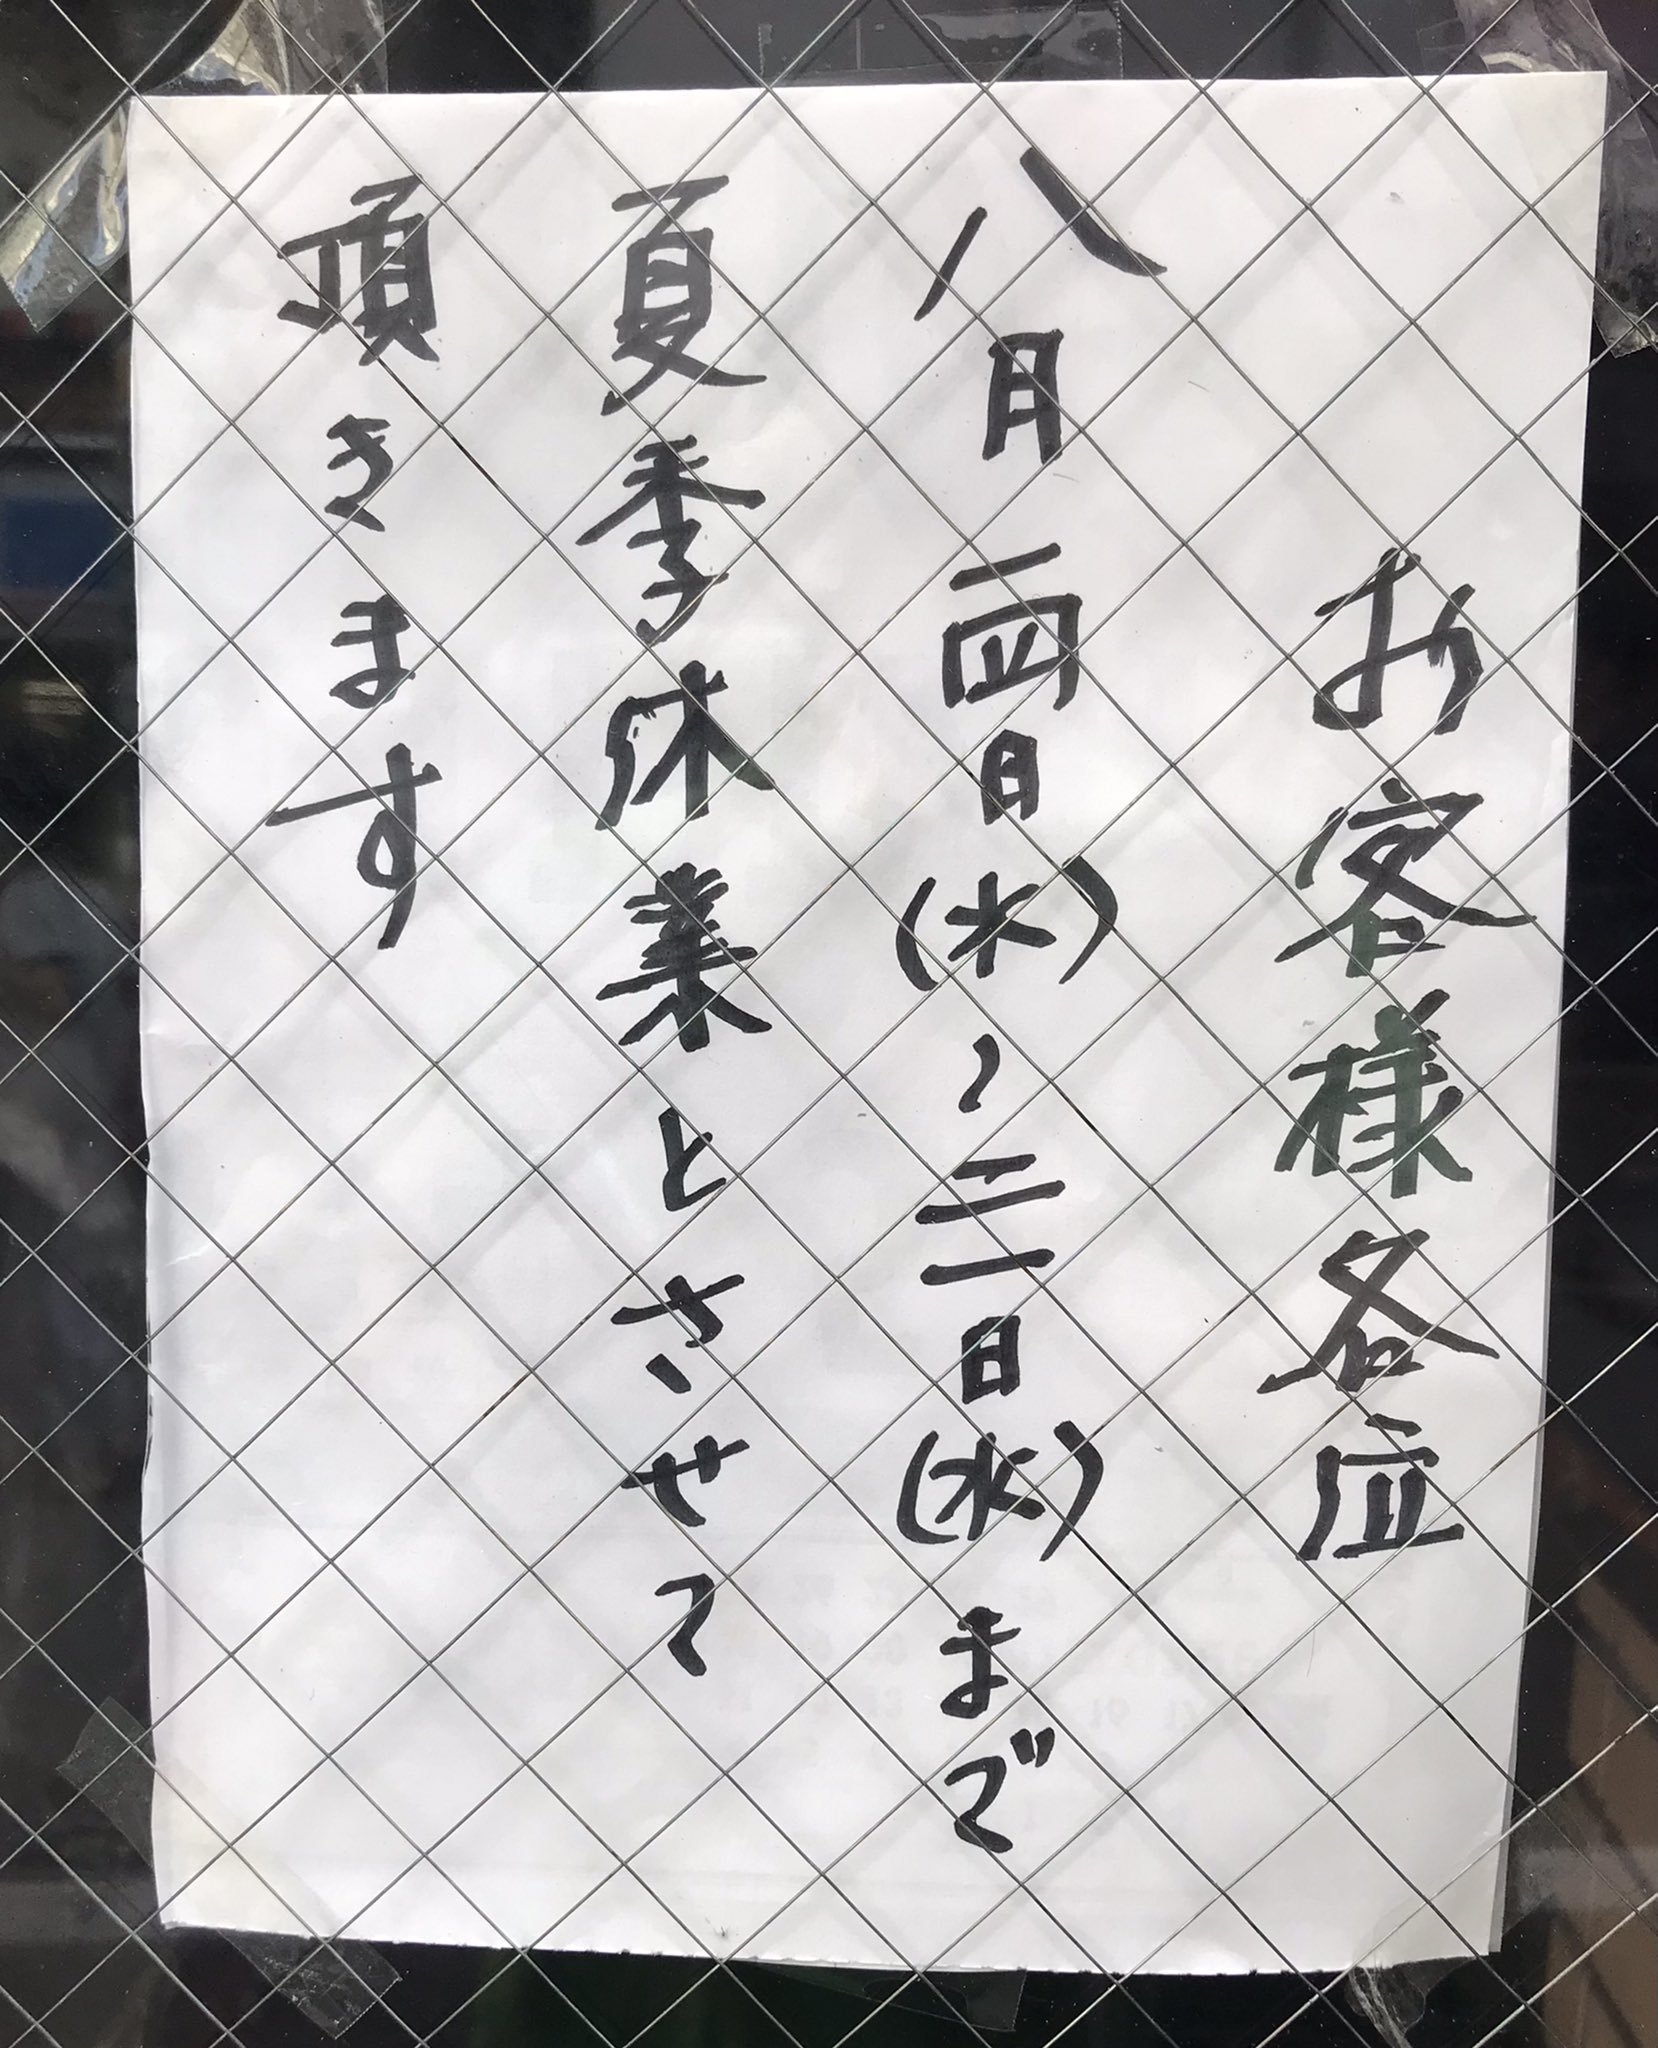 お客様各位
八月一四日(水)〜二一日(水)まで
夏季休業とさせて
頂きます